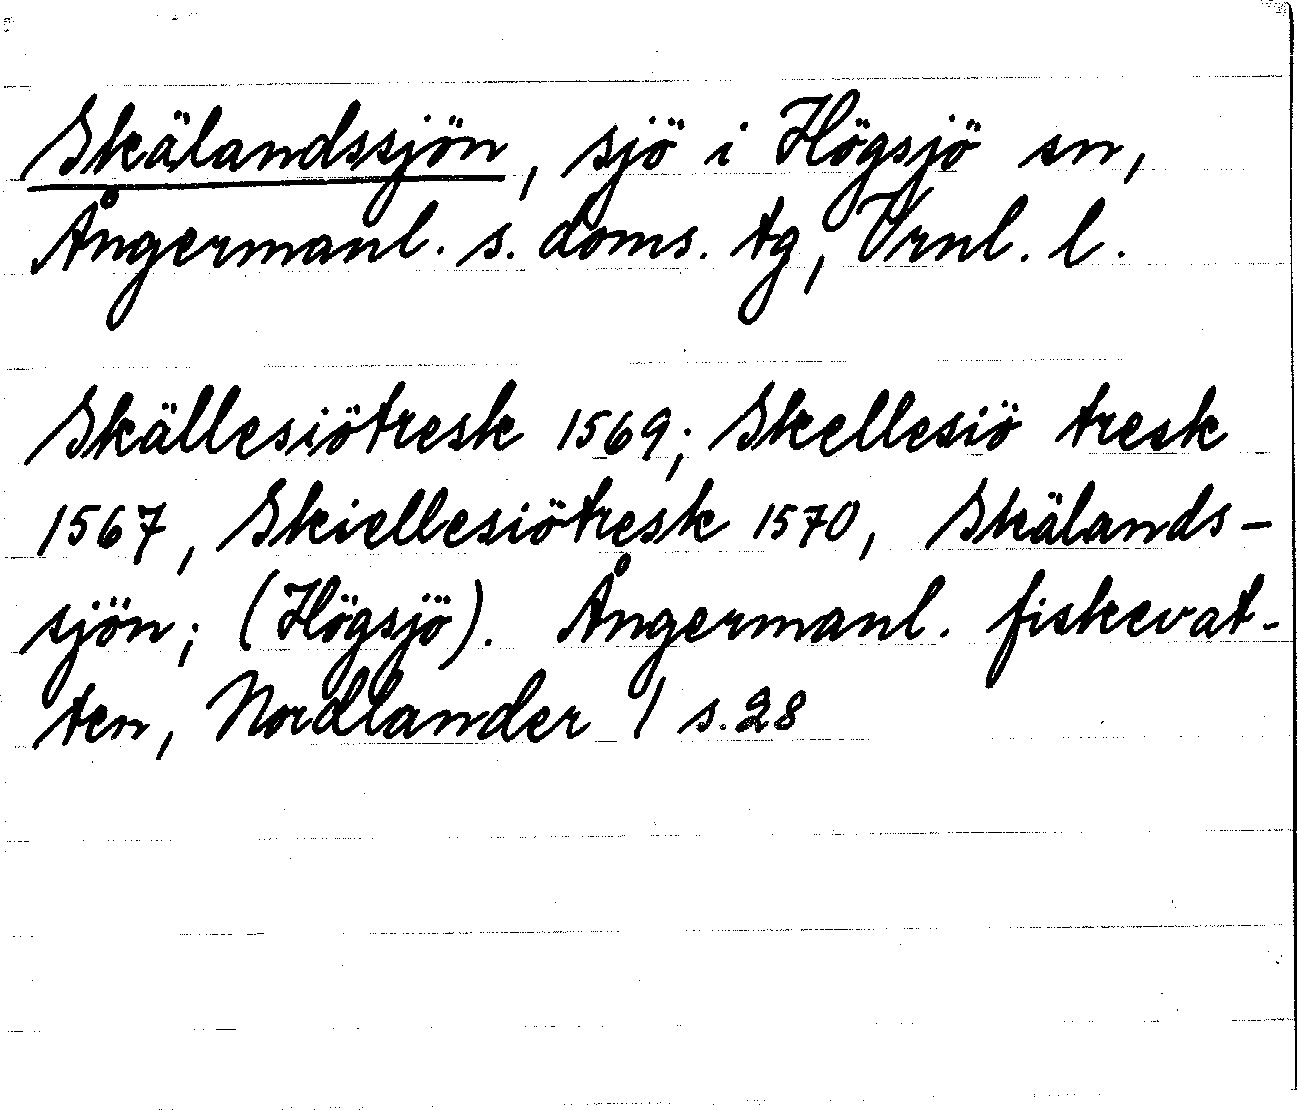 Skälandssjön, sjö i Högsjö sn,
Ångermanl. s. doms. tg, Vrnl. l.
Skällesiötresk 1569; Skellesiö tresk
1567, Skiellesiötresk 1570, Skälands-
sjön; (Högsjö). Ångermanl. fiskevat-
ten, Nordlander 1 s.28